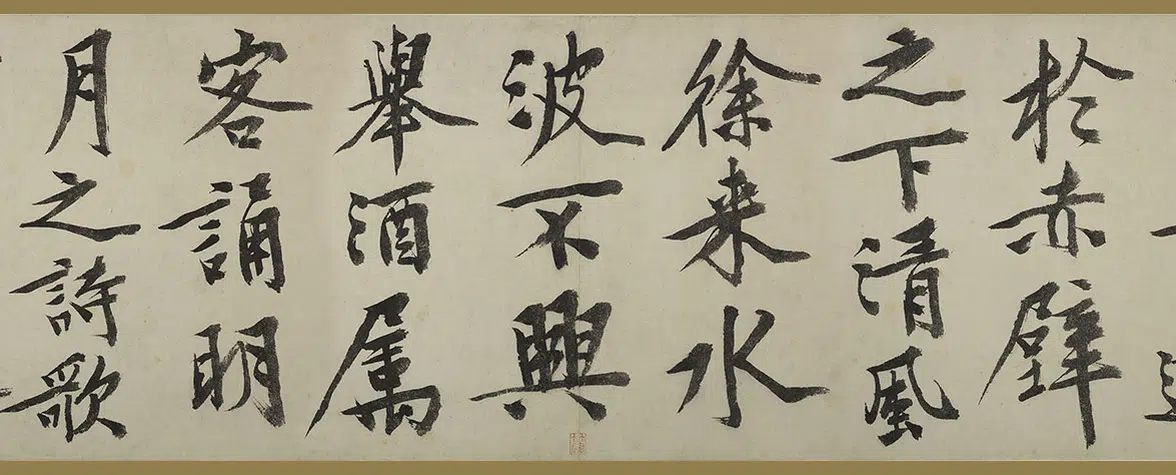 於赤壁
之下清風
徐来水
波不興
舉酒属
客誦明
月之詩歌